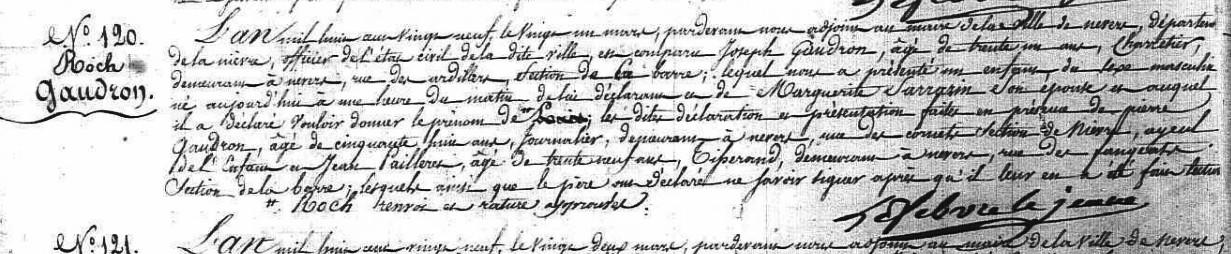 N.° 120.
Roch
Gaudron.
L'an mil huit cent vingt neuf, le vingt un mars, pardevant nous adjoint au maire de la ville de nevers, départem
de la nievre, officier de l'état civil de la dite ville, est comparu Joseph Gaudron, âgé de trente un ans, Charretier,
demeurant à nevers, rue des ardilliers, section de la barre; lequel nous a présenté un enfant du sexe masculin
né aujourd'hui à une heure du matin de lui déclarant et de Marguerite Sarrazin son épouse et auquel
il a déclaré vouloir donner le prénom de les dites déclaration et présentation faites en présence de pierre
Gaudron, âgé de cinquante huit ans, journalier, demeurant à nevers, rue des section de Nievre, ayeul
de l'Enfant et Jean Pailleres, âgé de trente neuf ans, Tisserand, demeurant à nevers, rue des
Section de la barre; lesquels ainsi que le père ont déclaré ne savoir signer après qu'il leur en a été fait lecture
Roch renvoi et rature approuvés.
Lefebvre le jeune
N.° 121.
L'an mil huit cent vingt neuf, le vingt deux mars, pardevant nous adjoint au maire de la ville de nevers,